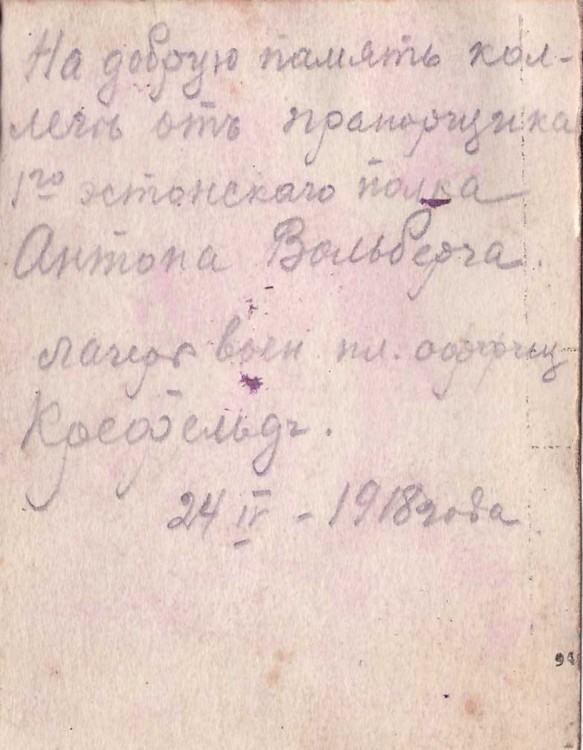 На добрую память кол-
легѣ отъ прапорщика
1го эстонскаго полка
Антона Вольберга.
лагерь воен пл. офицер
Крефельдъ.
24 IV - 1918 года
94